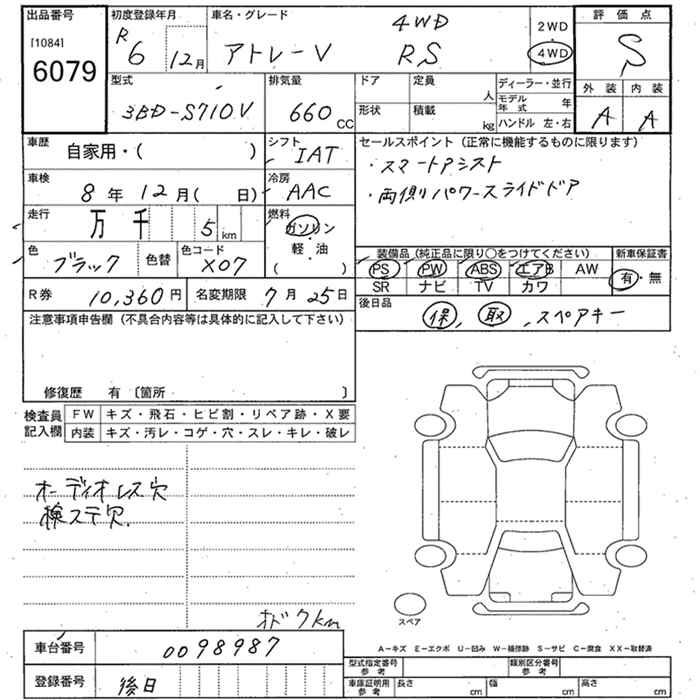 出品番号
[1084]
6079
初度登録年月
R 6 12月
車名・グレード
アトレーV
4WD
RS
2WD
4WD
評価点
S
外装 内装
A A
型式
3BD-S710V
排気量
660 CC
ドア 定員 人
形状 積載 kg
ディーラー・並行
モデル年式 年
ハンドル 左・右
車歴
自家用・( )
シフト
IAT
セールスポイント (正常に機能するものに限ります)
・スマートアシスト
・両側パワースライドドア
車検
8年 12月( 日)
冷房
AAC
走行
万 千 5 km
燃料
ガソリン
・
軽・油
( )
色
ブラック
色替
色コード
X07
装備品 (純正品に限り○をつけてください)
PS PW ABS エアB AW
SR ナビ TV カワ
新車保証書
有・無
R券 10,360円
名変期限 7月25日
後日品
保, 取, スペアキー
注意事項申告欄 (不具合内容等は具体的に記入して下さい)
修復歴 有 〔箇所 〕
検査員記入欄
FW キズ・飛石・ヒビ割・リペア跡・X要
内装 キズ・汚レ・コゲ・穴・スレ・キレ・破レ
オーディオレス穴
検ステ欠.
スペア
車台番号
0098987
登録番号
後日
A－キズ E－エクボ U－凹み W－補修跡 S－サビ C－腐食 XX－取替済
型式指定番号 参考
類別区分番号 参考
車庫証明用 参考
長さ cm 幅 cm 高さ cm